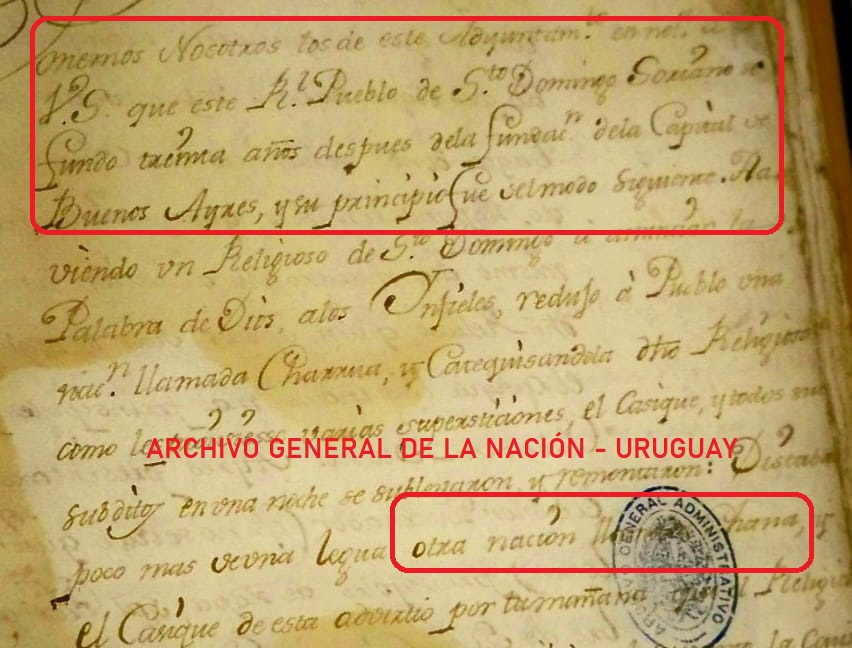 onemos Nosotros los de este Adyuntam.to en not.
V.S. que este R.l Pueblo de S.to Domingo Soriano se
fundo treinta años despues dela fundac.n dela Capital de
Buenos Ayres, y su principio fue del modo siguiente. Ha
viendo un Religioso de S.to Domingo a anunciar la
Palabra de Dios, alos Infieles, redujo à Pueblo una
nac.n llamada Charrua, y Catequisandola dho Religioso
como varias supersticiones, el Casique, y todos sus
ARCHIVO GENERAL DE LA NACIÓN - URUGUAY
subditos en una noche se sublevaron, y remontaron: Distaba
poco mas de una legua otra nación Chana, y
el Casique de esta advirtio por la mañana Religio
GENERAL ADMINISTRATIVO